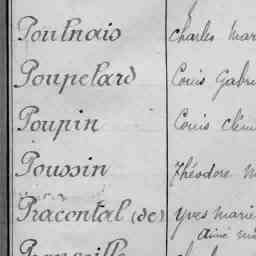 Poulnais Charles Mar
Poupelard Louis Gabri
Poupin Louis Clém
Poussin Théodore M
Pracontal (de) Yves Marie
Aimé